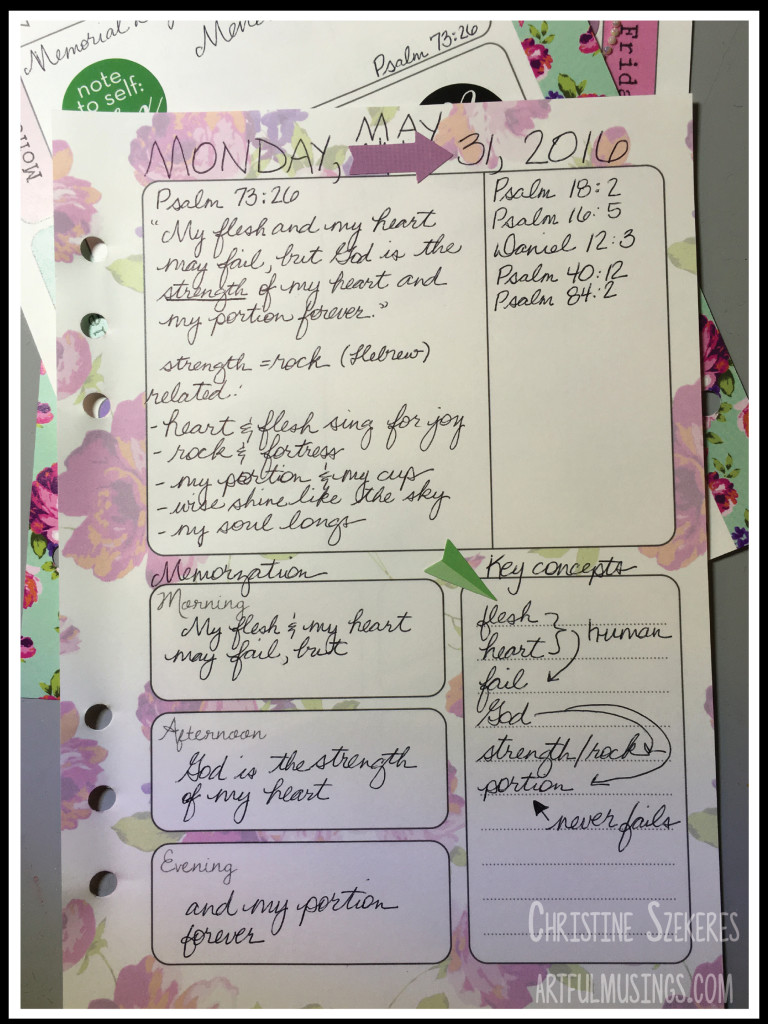 Memorial
Psalm 73:26
note
to self:
Frida
MAY
MONDAY, 31, 2016
Psalm 73:26
"My flesh and my heart
may fail, but God is the
strength of my heart and
my portion forever."
strength = rock (Hebrew)
related:
- heart & flesh sing for joy
- rock & fortress
- my portion & my cup
- wise shine like the sky
- my soul longs
Psalm 18:2
Psalm 16:5
Daniel 12:3
Psalm 40:12
Psalm 84:2
Memorzation
Morning
My flesh & my heart
may fail, but
Afternoon
God is the strength
of my heart
Evening
and my portion
forever
Key concepts
flesh
heart
human
fail
God
strength/rock
portion
never fails
CHRISTINE SZEKERES
ARTFULMUSINGS.COM